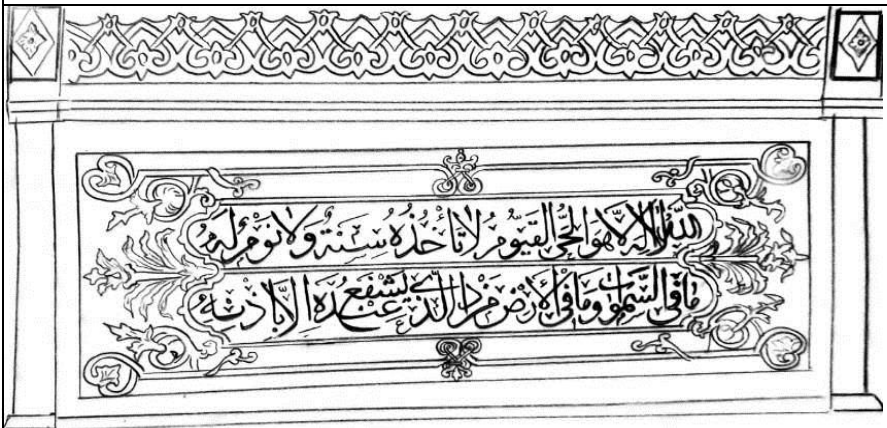 اللّٰهُ لَا إِلٰهَ إِلَّا هُوَ الْحَيُّ الْقَيُّومُ لَا تَأْخُذُهُ سِنَةٌ وَلَا نَوْمٌ لَهُ
مَا فِي السَّمٰوَاتِ وَمَا فِي الْأَرْضِ مَنْ ذَا الَّذِي يَشْفَعُ عِنْدَهُ إِلَّا بِإِذْنِهِ